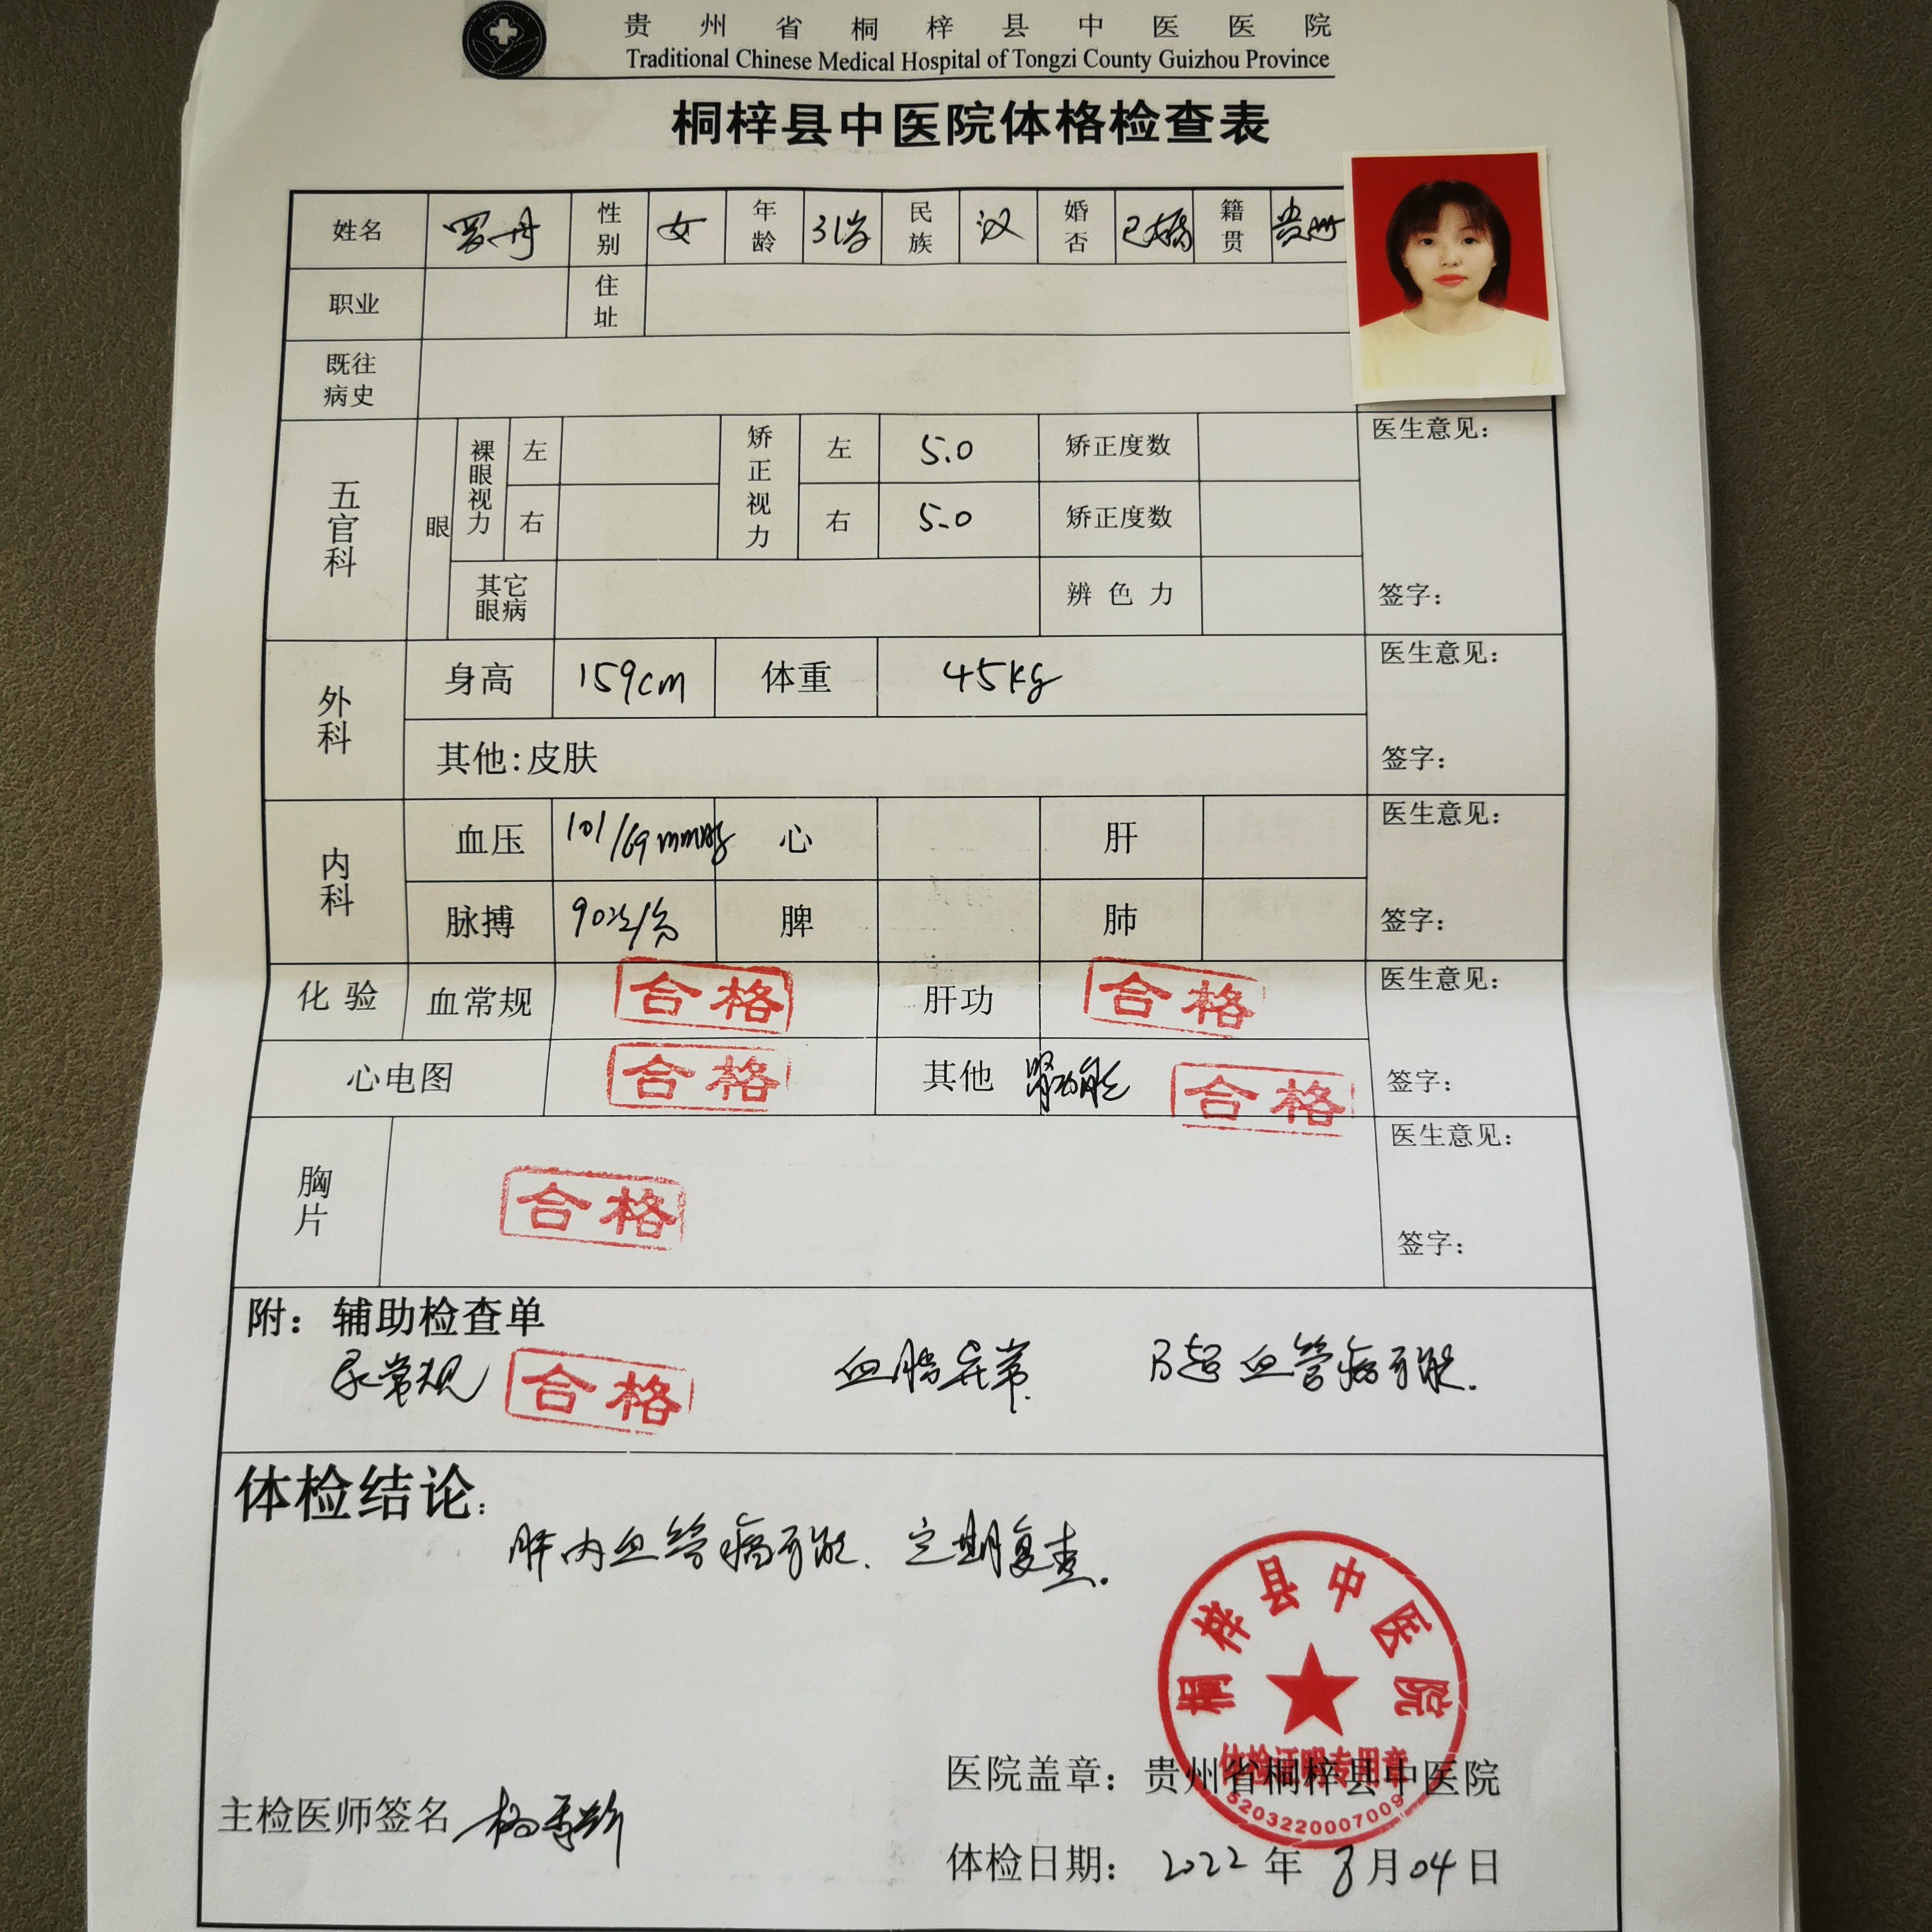 贵州省桐梓县中医医院
Traditional Chinese Medical Hospital of Tongzi County Guizhou Province
桐梓县中医院体格检查表
姓名 罗丹 性别 女 年龄 31岁 民族 汉 婚否 已婚 籍贯 贵州
职业 住址
既往病史
五官科 眼 裸眼视力 左 矫正视力 左 5.0 矫正度数 医生意见：
右 右 5.0 矫正度数
其它眼病 辨色力 签字：
外科 身高 159cm 体重 45kg 医生意见：
其他：皮肤 签字：
内科 血压 101/69mmHg 心 肝 医生意见：
脉搏 90次/分 脾 肺 签字：
化验 血常规 合格 肝功 合格 医生意见：
心电图 合格 其他 肾功能 合格 签字：
胸片 合格 医生意见：
签字：
附：辅助检查单
尿常规 合格 血脂异常. B超 血管瘤可能.
体检结论：
肝内血管瘤可能. 定期复查.
桐梓县中医院
体检证明专用章
5203220007009
医院盖章：贵州省桐梓县中医院
主检医师签名
体检日期：2022年8月04日